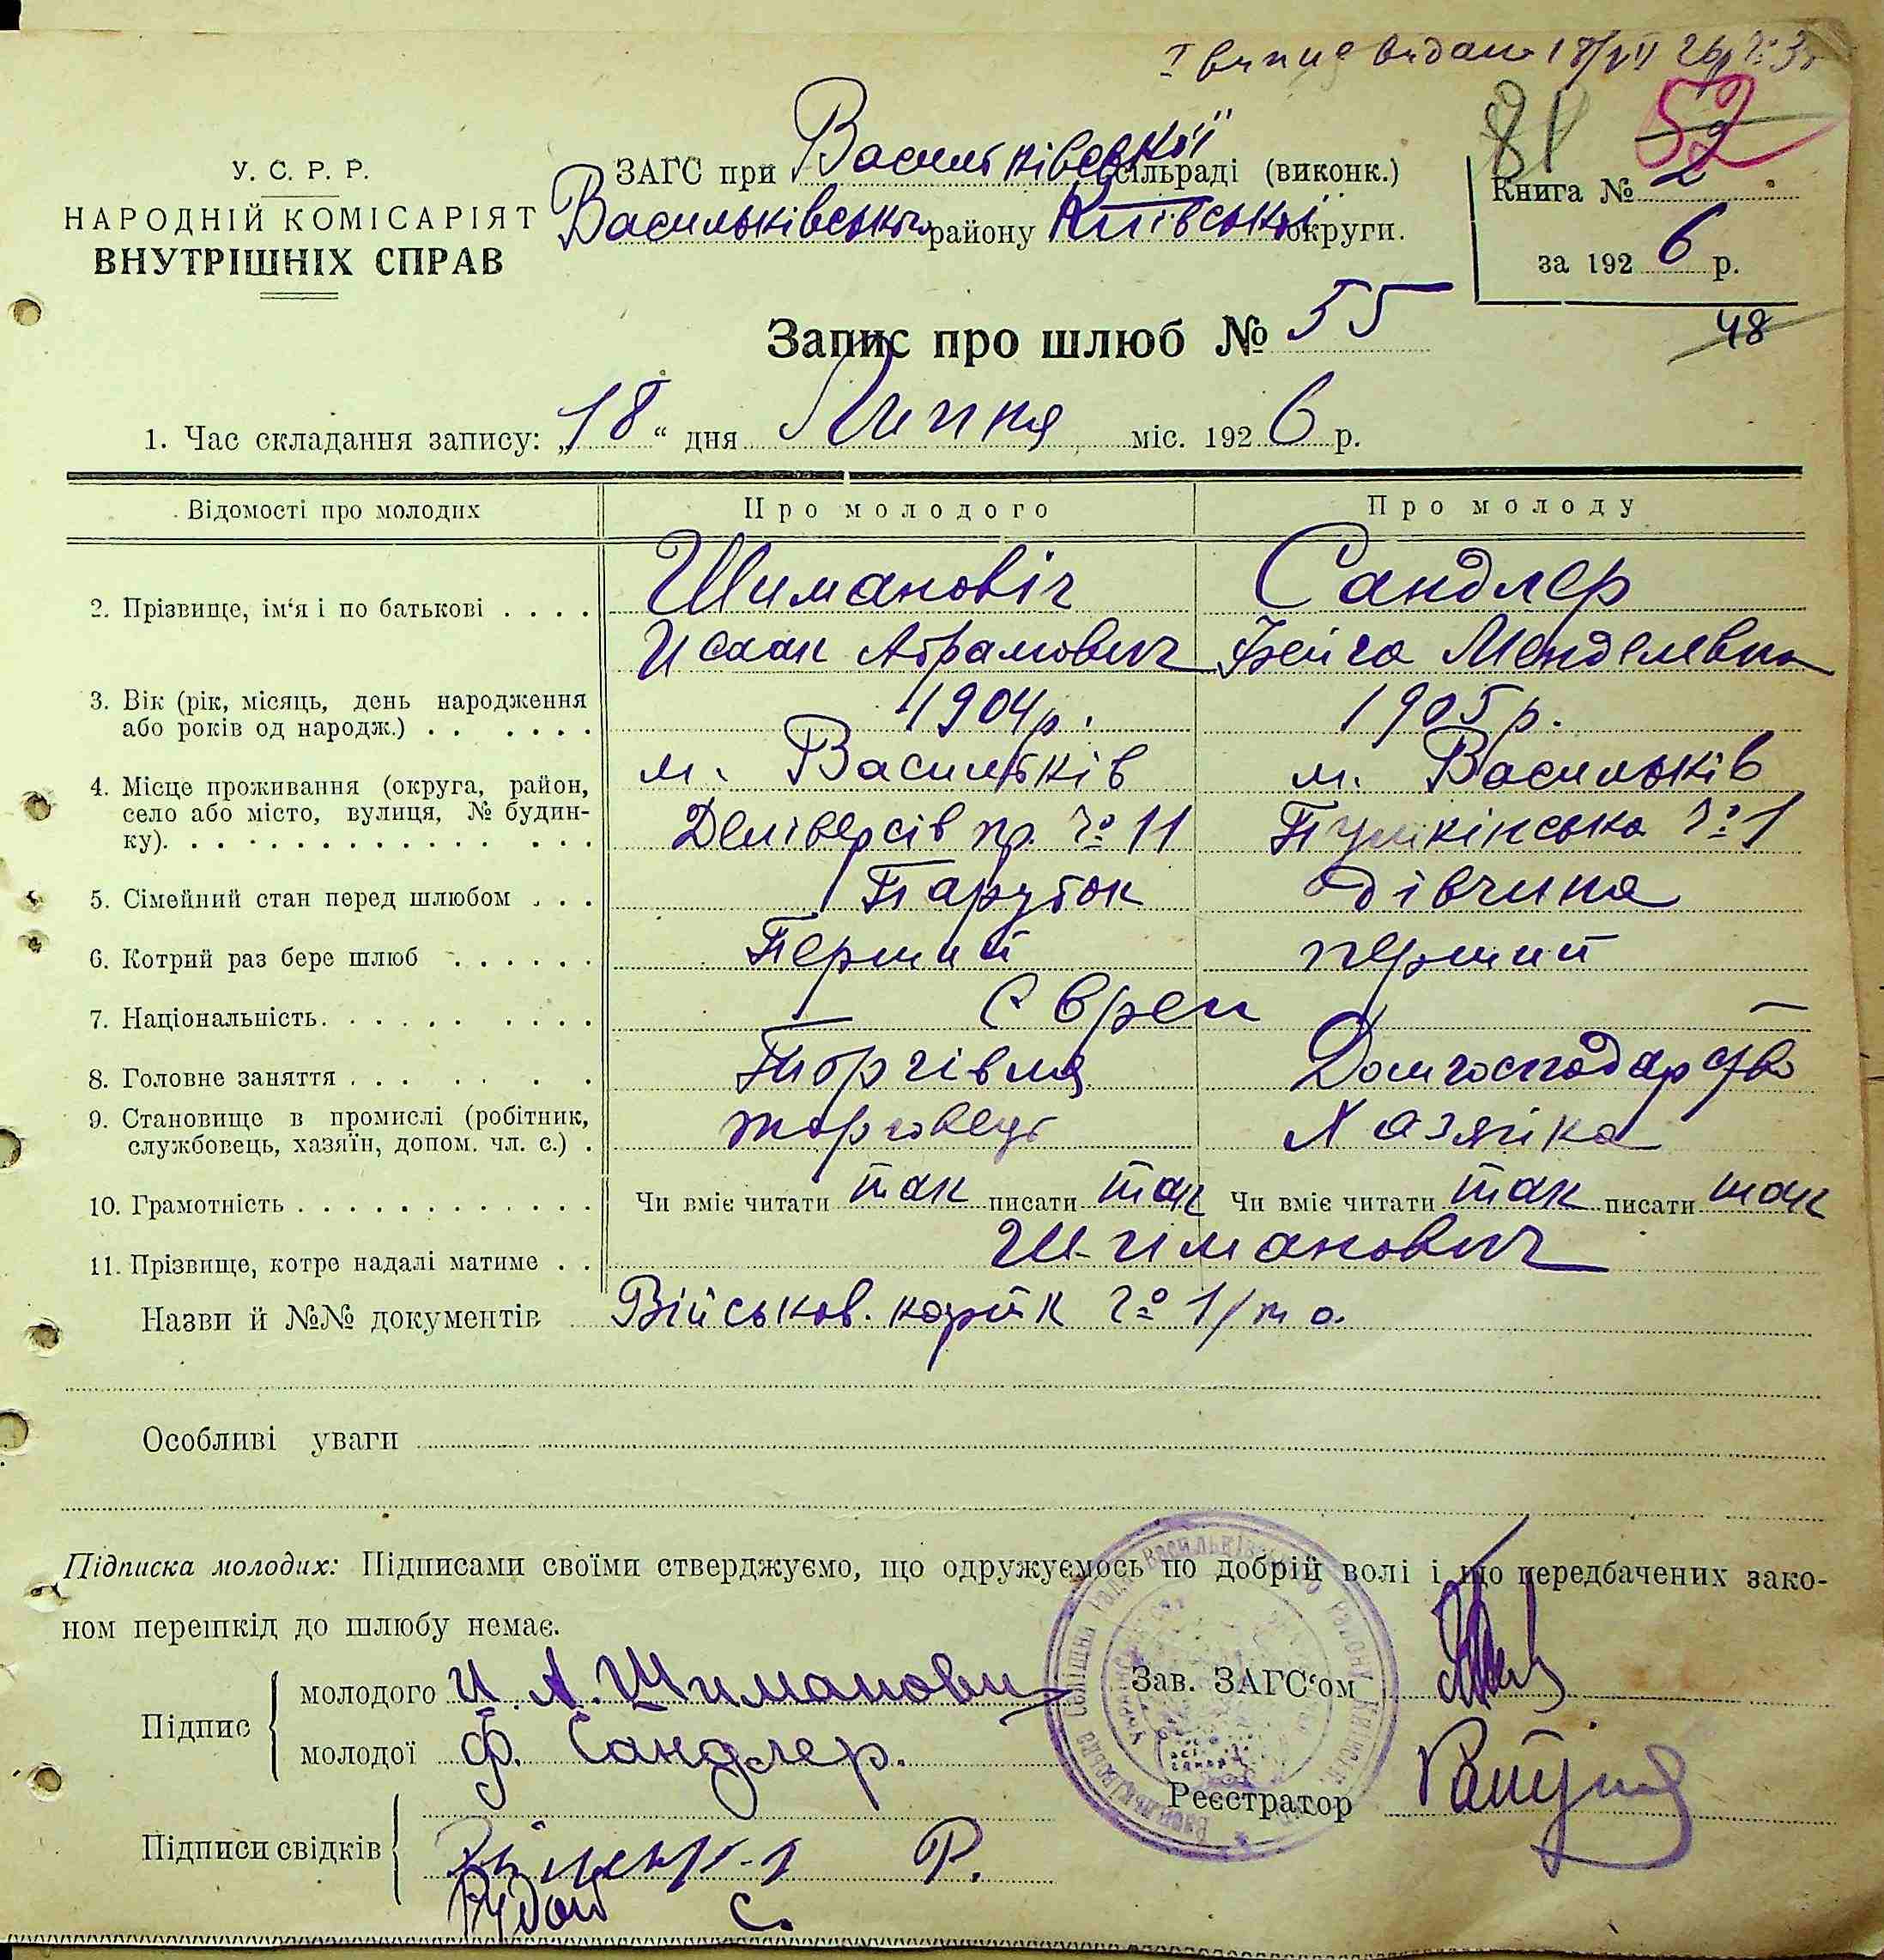 І випис видано 18/VII 26р №
81 52
У. С. Р. Р.
НАРОДНІЙ КОМІСАРІЯТ
ВНУТРІШНІХ СПРАВ
ЗАГС при Васильківської сільраді (виконк.)
Васильківського району Київської округи.
Книга № 2
за 1926 р.
48
Запис про шлюб № 55
1. Час складання запису: „18“ дня Липня міс. 1926 р.
Відомості про молодих Про молодого Про молоду
2. Прізвище, ім‘я і по батькові . . . . Шимановіч Сандлер
Исаак Абрамович Фейга Менделевна
3. Вік (рік, місяць, день народження
або років од народж.) 1904 р. 1905 р.
4. Місце проживання (округа, район, м. Васильків м. Васильків
село або місто, вулиця, № будин-
ку). пр. № 11 Пушкінська № 1
5. Сімейний стан перед шлюбом . . . Парубок дівчина
6. Котрий раз бере шлюб Перший перший
7. Національність. Євреи —
8. Головне заняття Торгівля Домгосподарство
9. Становище в промислі (робітник,
службовець, хазяїн, допом. чл. с.) . торговець Хазяйка
10. Грамотність Чи вміє читати так писати так Чи вміє читати так писати так
11. Прізвище, котре надалі матиме . . Шиманович
Назви й №№ документів Військов. № 1/
Особливі уваги
Підписка молодих: Підписами своїми стверджуємо, що одружуємось по добрій волі і що передбачених зако-
ном перешкід до шлюбу немає.
Підпис
молодого И. А. Шиманович
молодої Ф. Сандлер.
Зав. ЗАГС‘ом
Реєстратор
Підписи свідків
Р.
С.